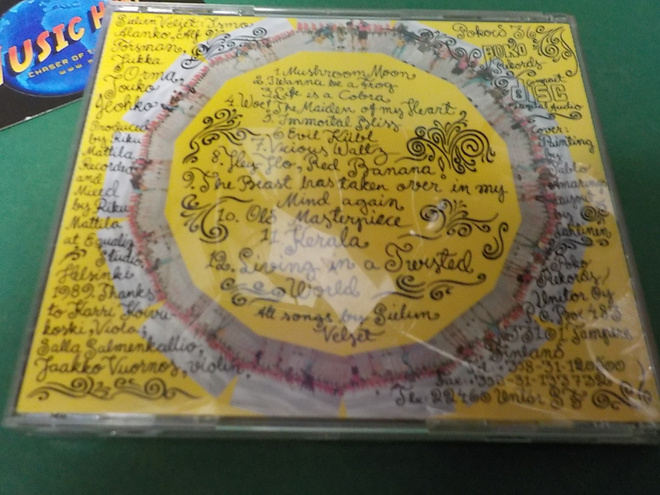 MUSIC H
CHASER OF
Sielun Veljet: Ismo
Alanko, Alf
Forsman,
Jukka
Orma,
Jouko
Hohko
Produced
by Riku
Mattila
Recorded
and
Mixed
by Riku
Mattila
at Equaliz
Studio
Helsinki
1989. Thanks
to Harri
koski, Viola,
Salla Salmenkallio,
Jaakko Vuornos, violin
1. Mushroom Moon
2. I wanna be a frog
3. Life is a Cobra
4. Woe! The Maiden of my Heart
5. Immortal Bliss
6. Evil
7. Vicious Waltz
8. Hey-Flo, Red Banana
9. The Beast has taken over in my
Mind again
10. Old Masterpiece
11. Kerala
12. Living in a Twisted
World
All songs by Sielun
Veljet
POKO
Rekords
Compact
DISC
Digital Audio
Cover:
Painting
by
Pablo
layout
by
Poko
Rekords/
Unitor Oy
P.O. Box 483
33101 Tampere
Finland